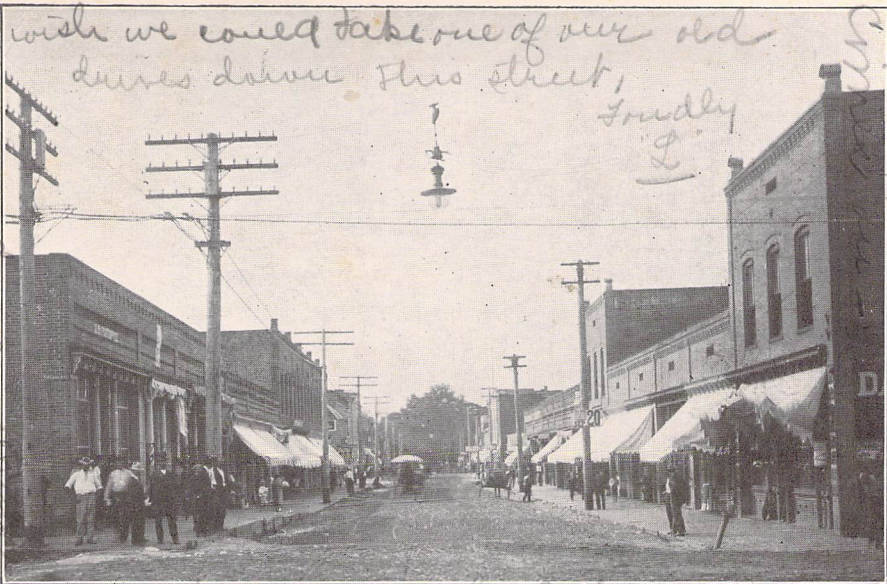 wish we could take one of our old
drives down this street,
Fondly
L
20
D